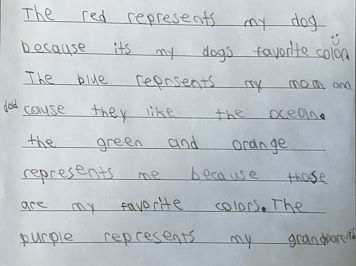 The red represents my dog
because its my dogs favorite color.
The blue reprsents my mom and
dad cause they like the ocean.
the green and orange
represents me because those
are my favorite colors. The
purple represents my grandparents